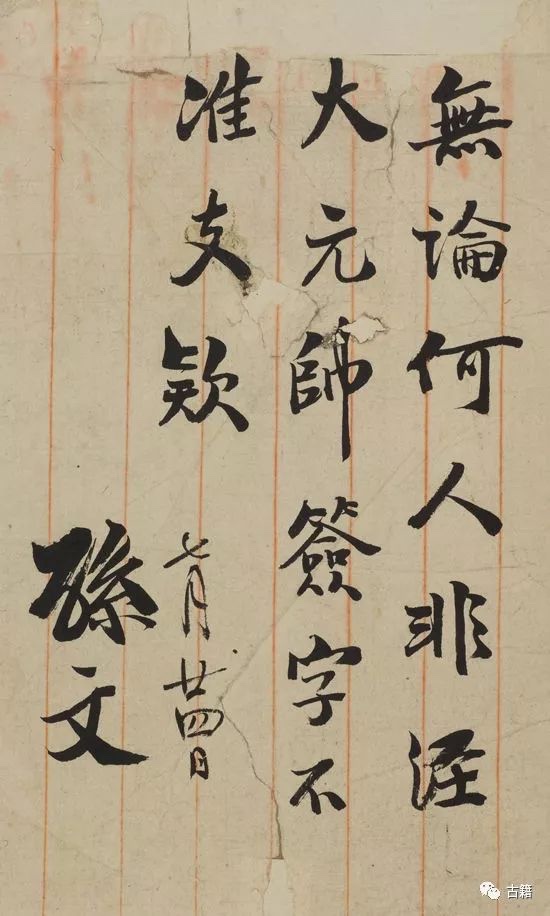 無論何人非經
大元帥簽字不
准支款
七月廿四日
孫文
古籍